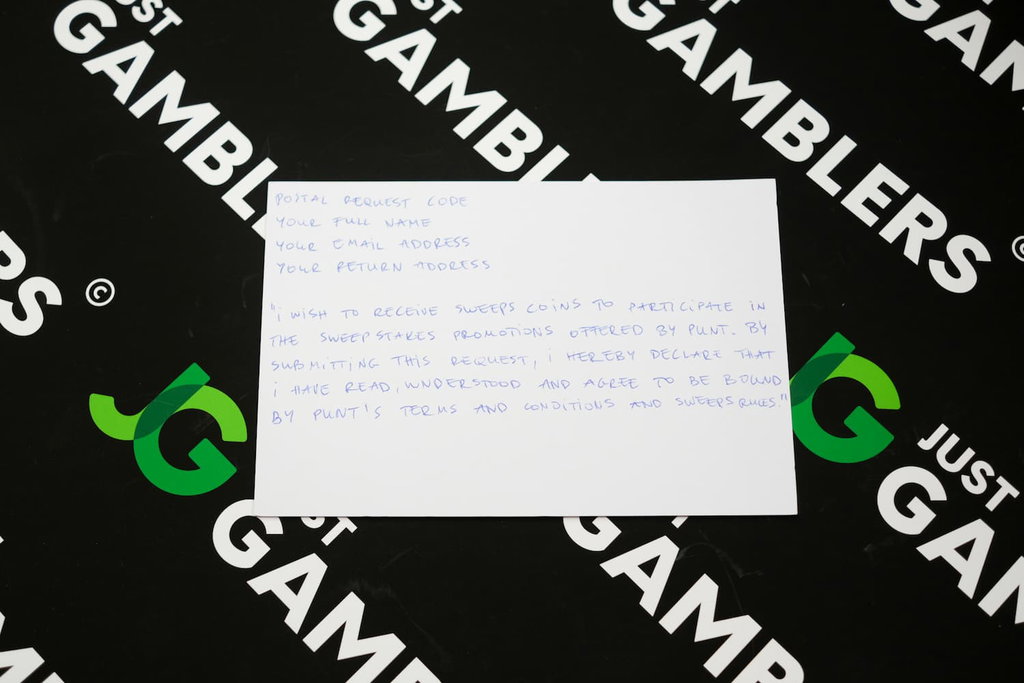 JUST
GAMBLERS
GAMBL
GAMBLERS
GAMBLERS
©
POSTAL REQUEST CODE
YOUR FULL NAME
YOUR EMAIL ADDRESS
YOUR RETURN ADDRESS
"I WISH TO RECEIVE SWEEPS COINS TO PARTICIPATE IN
THE SWEEPSTAKES PROMOTIONS OFFERED BY PUNT. BY
SUBMITTING THIS REQUEST, I HEREBY DECLARE THAT
I HAVE READ, UNDERSTOOD AND AGREE TO BE BOUND
BY PUNT'S TERMS AND CONDITIONS AND SWEEPS RULES."
JG
JG
JUST
GAM
GAMB